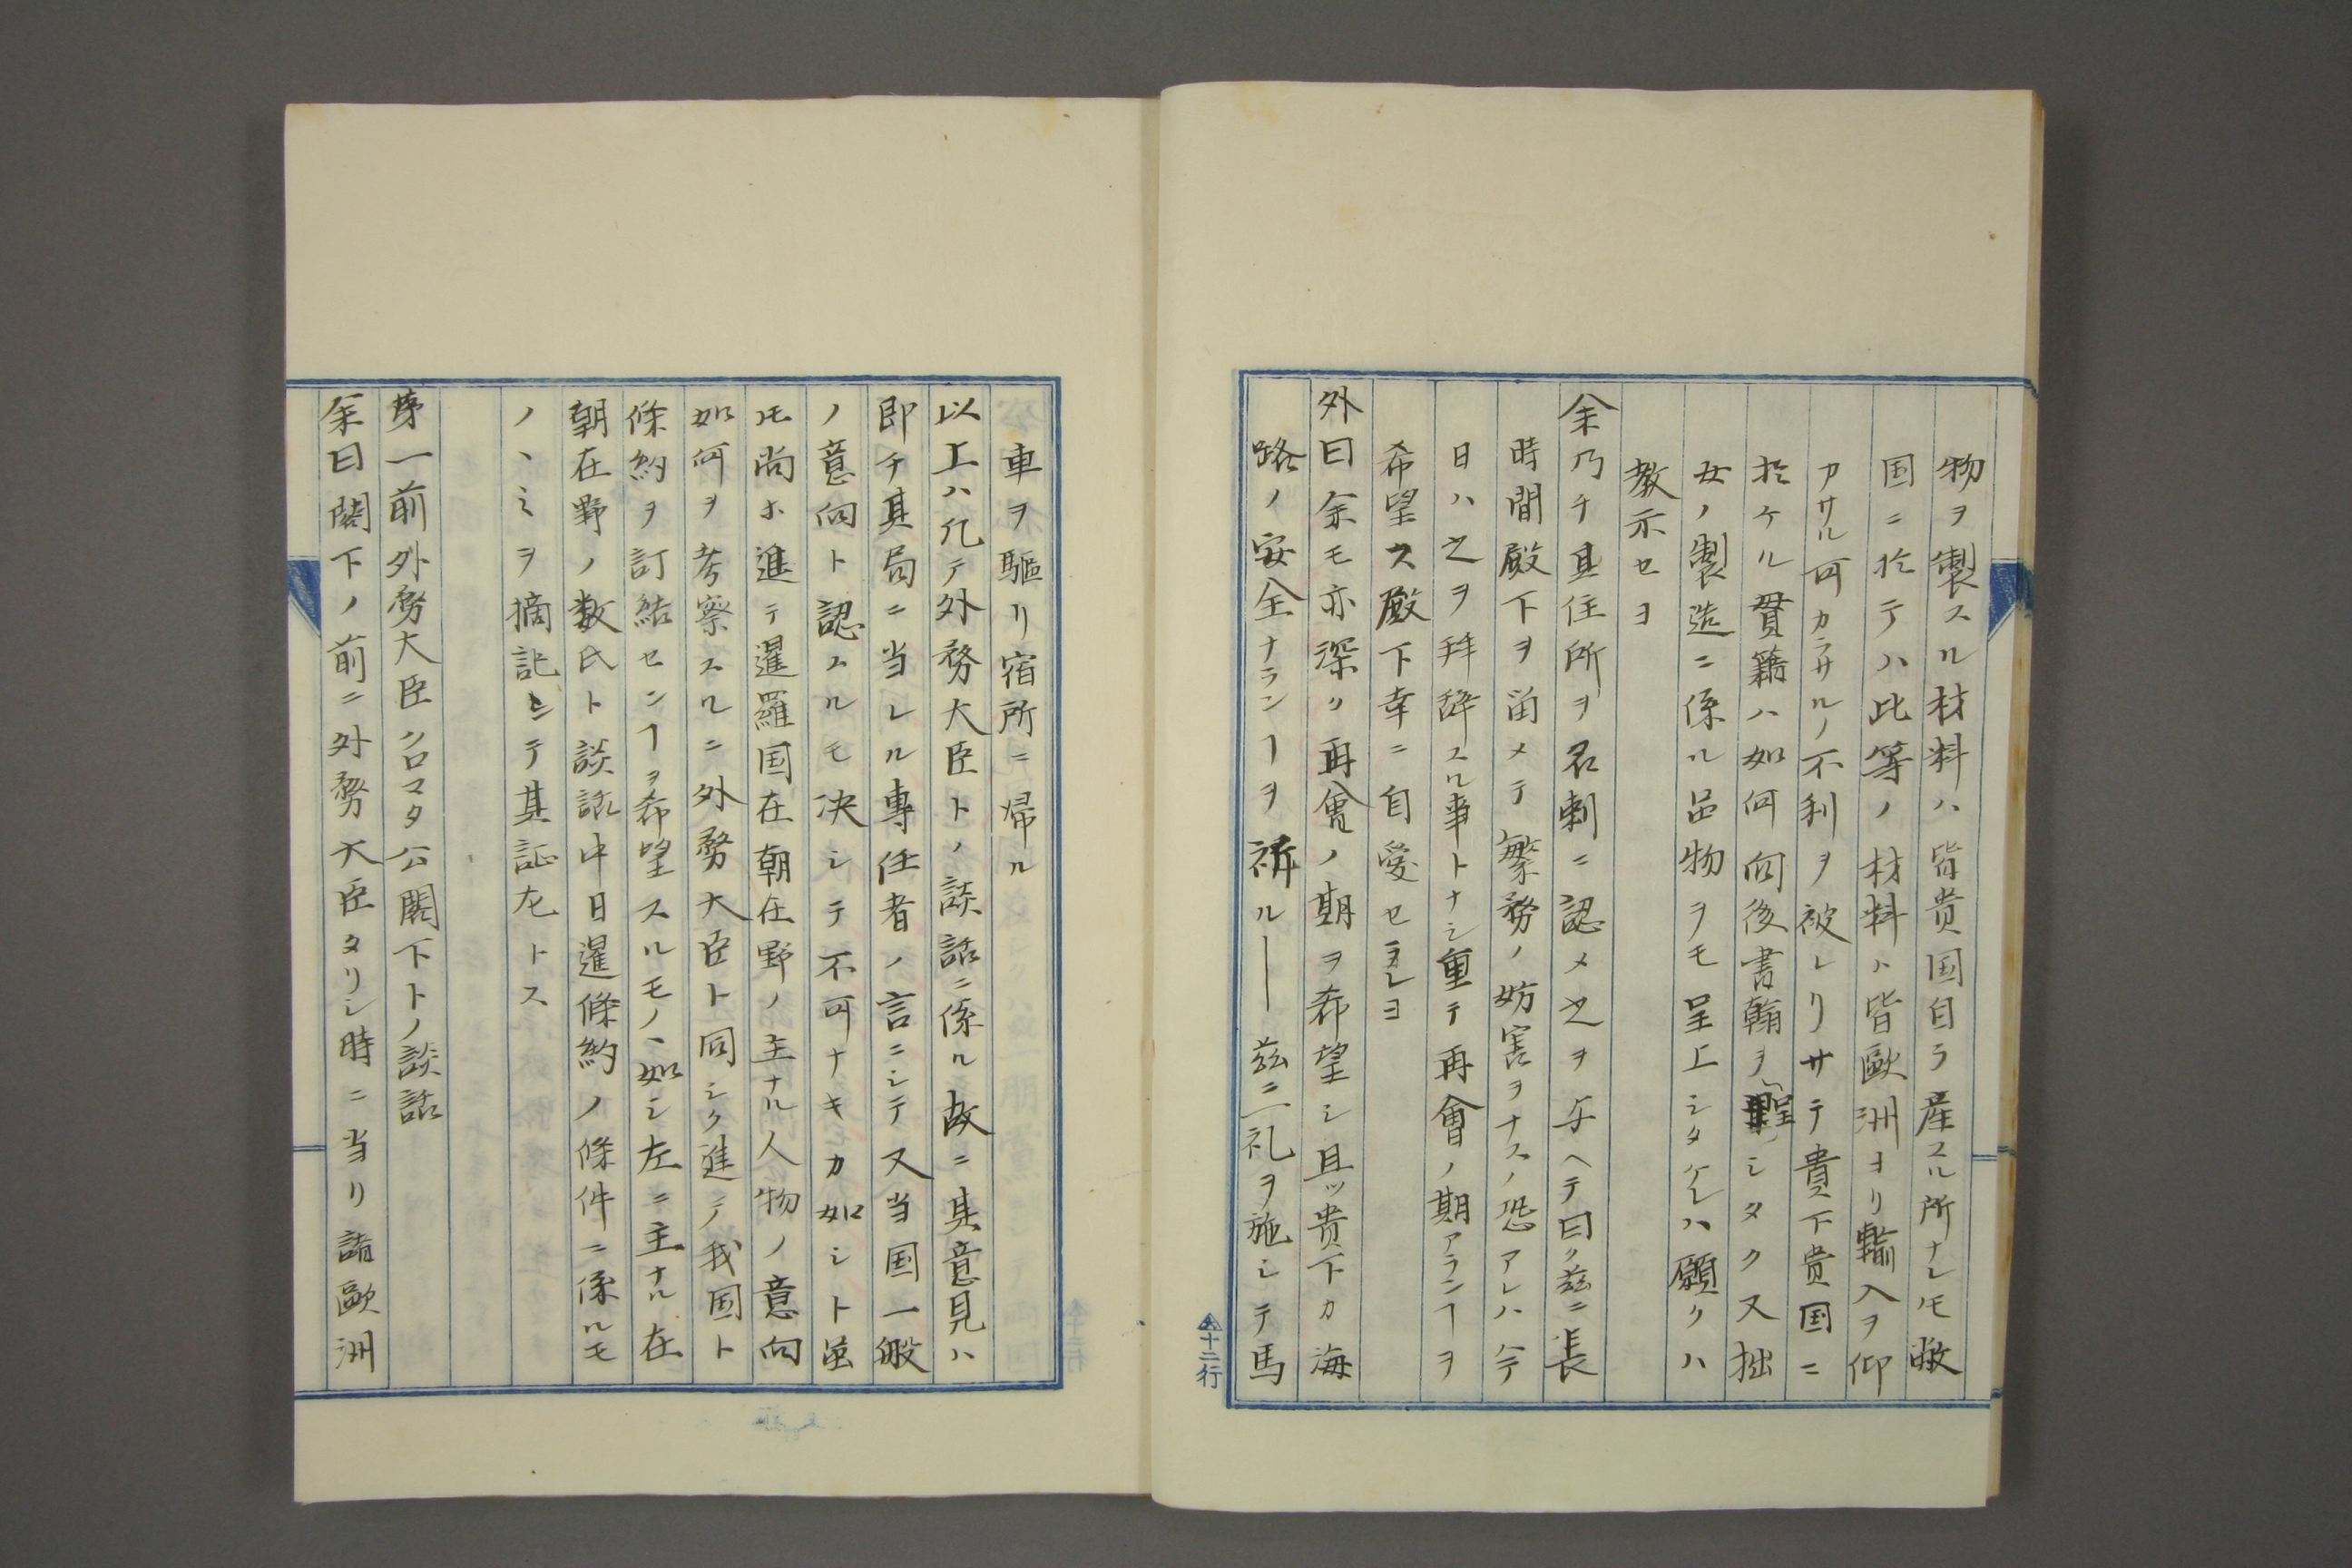 物ヲ製スル材料ハ皆貴国自ラ産スル所ナレ𪜈敝
国ニ於テハ此等ノ材料ハ皆歐洲ヨリ輸入ヲ仰
カサル可カラサルノ不利ヲ被レリサテ貴下貴国ニ
於ケル貫籍ハ如何向後書翰ヲ呈シタク又拙
女ノ製造ニ係ル品物ヲモ呈上シタケレハ願クハ
教示セヨ
余乃チ其住所ヲ名刺ニ認メ之ヲ与ヘテ曰ク茲ニ長
時間殿下ヲ留メテ繁務ノ妨害ヲナスノ恐アレハ今
日ハ之ヲ拜辞スル事トナシ重テ再會ノ期アランヿヲ
希望ス殿下幸ニ自愛セラレヨ
外曰余モ亦深ク再會ノ期ヲ希望シ且ツ貴下カ海
路ノ安全ナランヿヲ祈ル―茲ニ一礼ヲ施シテ馬
十二行
車ヲ驅リ宿所ニ帰ル
以上ハ凢テ外務大臣トノ談話ニ係ル故ニ其意見ハ
即チ其局ニ当レル專任者ノ言ニシテ又当国一般
ノ意向ト認ムルモ决シテ不可ナキカ如シト虽
𪜈尚ホ進テ暹羅国在朝在野ノ主ナル人物ノ意向
如何ヲ考察スルニ外務大臣ト同シク進テ我国ト
條約ヲ訂結センヿヲ希望スルモノヽ如シ左ニ主ナル在
朝在野ノ数氏ト談話中日暹條約ノ條件ニ係ルモ
ノヽミヲ摘記シテ其証左トス
第一前外務大臣クロマタ公閣下トノ談話
余曰閣下ノ前ニ外務大臣タリシ時ニ当リ諸歐洲